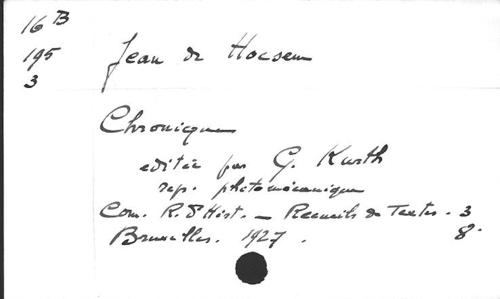 16 B
195
3
Jean de Hocsem
Chronique
editée par G. Kurth
rep. photomécanique
Com. R. d'Hist. _ Recueils de Textes. 3
Bruxelles. 1927. 8.